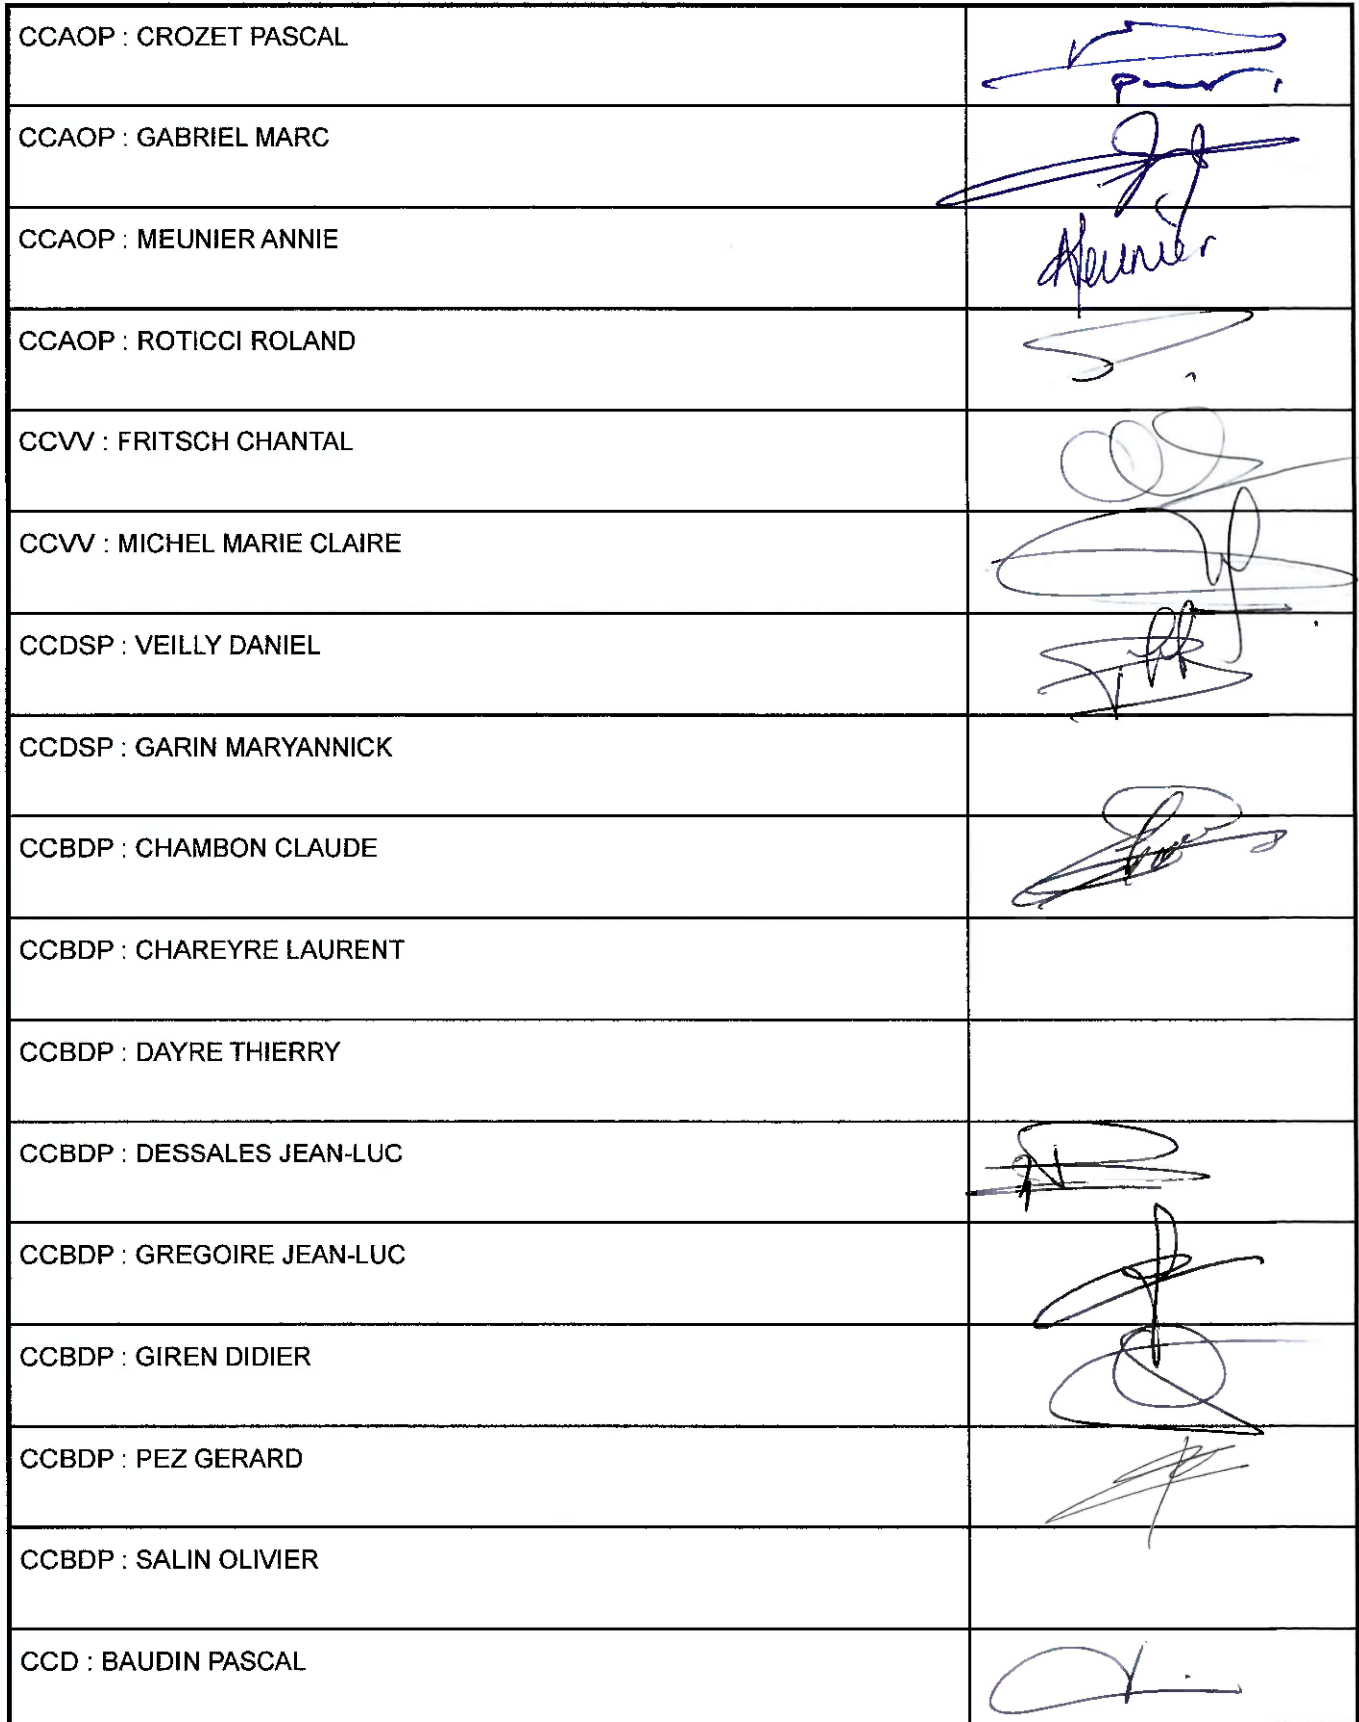 CCAOP : CROZET PASCAL
CCAOP : GABRIEL MARC
CCAOP : MEUNIER ANNIE
Meunier
CCAOP : ROTICCI ROLAND
CCVV : FRITSCH CHANTAL
CCVV : MICHEL MARIE CLAIRE
CCDSP : VEILLY DANIEL
CCDSP : GARIN MARYANNICK
CCBDP : CHAMBON CLAUDE
CCBDP : CHAREYRE LAURENT
CCBDP : DAYRE THIERRY
CCBDP : DESSALES JEAN-LUC
CCBDP : GREGOIRE JEAN-LUC
CCBDP : GIREN DIDIER
CCBDP : PEZ GERARD
CCBDP : SALIN OLIVIER
CCD : BAUDIN PASCAL